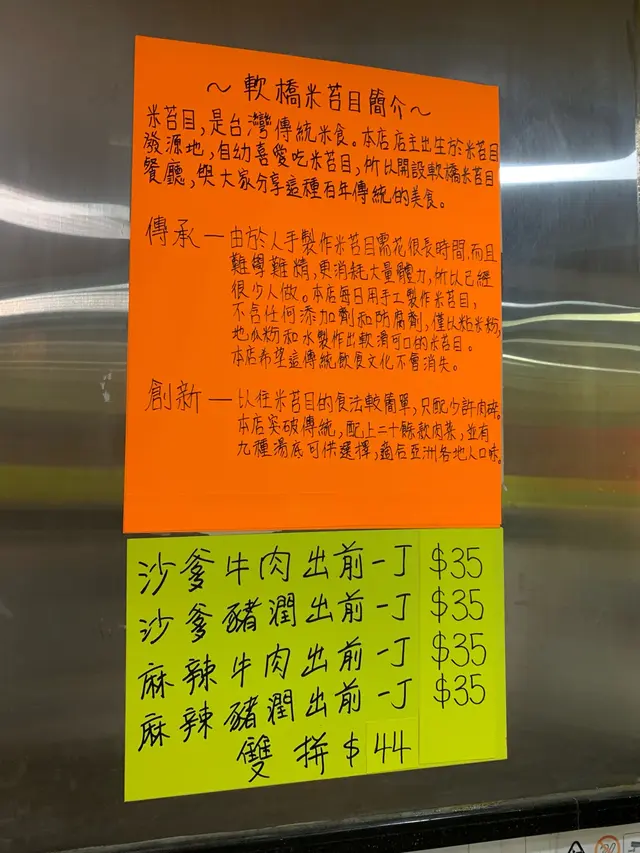 ～軟橋米苔目簡介～
米苔目，是台灣傳統米食。本店店主出生於米苔目
發源地，自幼喜愛吃米苔目，所以開設軟橋米苔目
餐廳，與大家分享這種百年傳統的美食。
傳承—由於人手製作米苔目需花很長時間，而且
難學難精，更消耗大量體力，所以已經
很少人做。本店每日用手工製作米苔目，
不含任何添加劑和防腐劑，僅以粘米粉，
地瓜粉和水製作出軟滑可口的米苔目。
本店希望這傳統飲食文化不會消失。
創新—以往米苔目的食法較簡單，只配少許肉碎。
本店突破傳統，配上二十餘款肉菜，並有
九種湯底可供選擇，適合亞洲各地人口味。
沙爹牛肉出前一丁 $35
沙爹豬潤出前一丁 $35
麻辣牛肉出前一丁 $35
麻辣豬潤出前一丁 $35
雙拼 $44